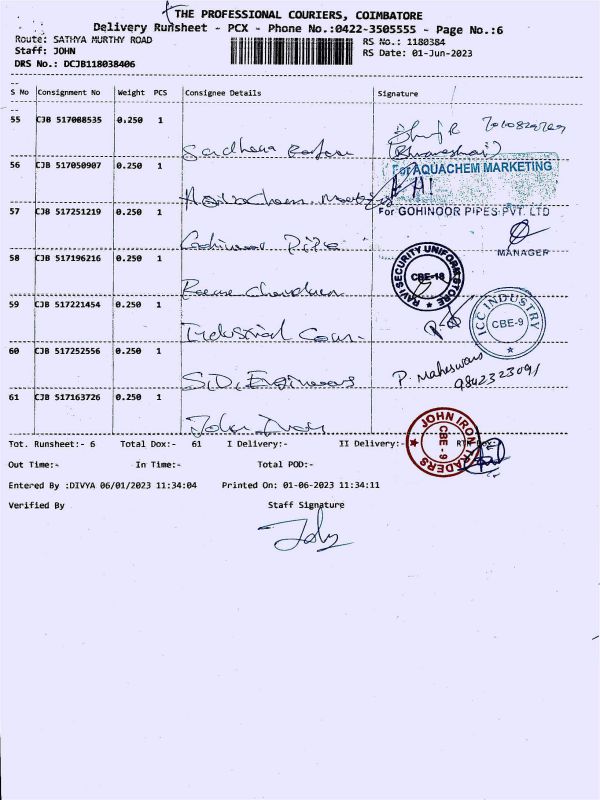 THE PROFESSIONAL COURIERS, COIMBATORE
Delivery Runsheet - PCX - Phone No.:0422-3505555 - Page No.:6
Route: SATHYA MURTHY ROAD
RS No.: 1180384
Staff: JOHN
RS Date: 01-Jun-2023
DRS No.: DCJB118038406
S No Consignment No Weight PCS Consignee Details Signature
55 CJB 517088535 0.250 1
(Bhuvaneshai)
56 CJB 517050907 0.250 1
For AQUACHEM MARKETING
57 CJB 517251219 0.250 1
For GOHINOOR PIPES PVT. LTD
MANAGER
58 CJB 517196216 0.250 1
RAVI SECURITY UNIFORM STORE CBE-18
59 CJB 517221454 0.250 1
Industrial
ICC INDUSTRY CBE-9
60 CJB 517252556 0.250 1
S.D. Engineers
P. Maheswari
9842323091
61 CJB 517163726 0.250 1
John Iron
JOHN IRON TRADERS CBE - 9
Tot. Runsheet:- 6 Total Dox:- 61 I Delivery:- II Delivery:-
Out Time:- In Time:- Total POD:-
Entered By :DIVYA 06/01/2023 11:34:04 Printed On: 01-06-2023 11:34:11
Verified By Staff Signature